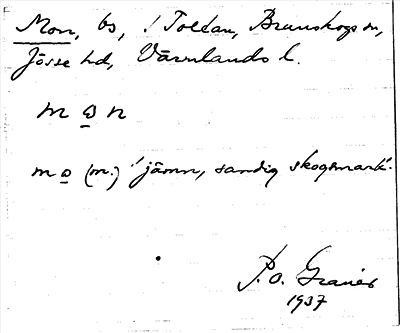 Mon, bs, i Tolita, Brunskogs sn,
Jösse hd, Värmlands l.
m ɷ n
m ɷ (m.) 'jämn, sandig skogsmark'.
P. O. Granér
1937